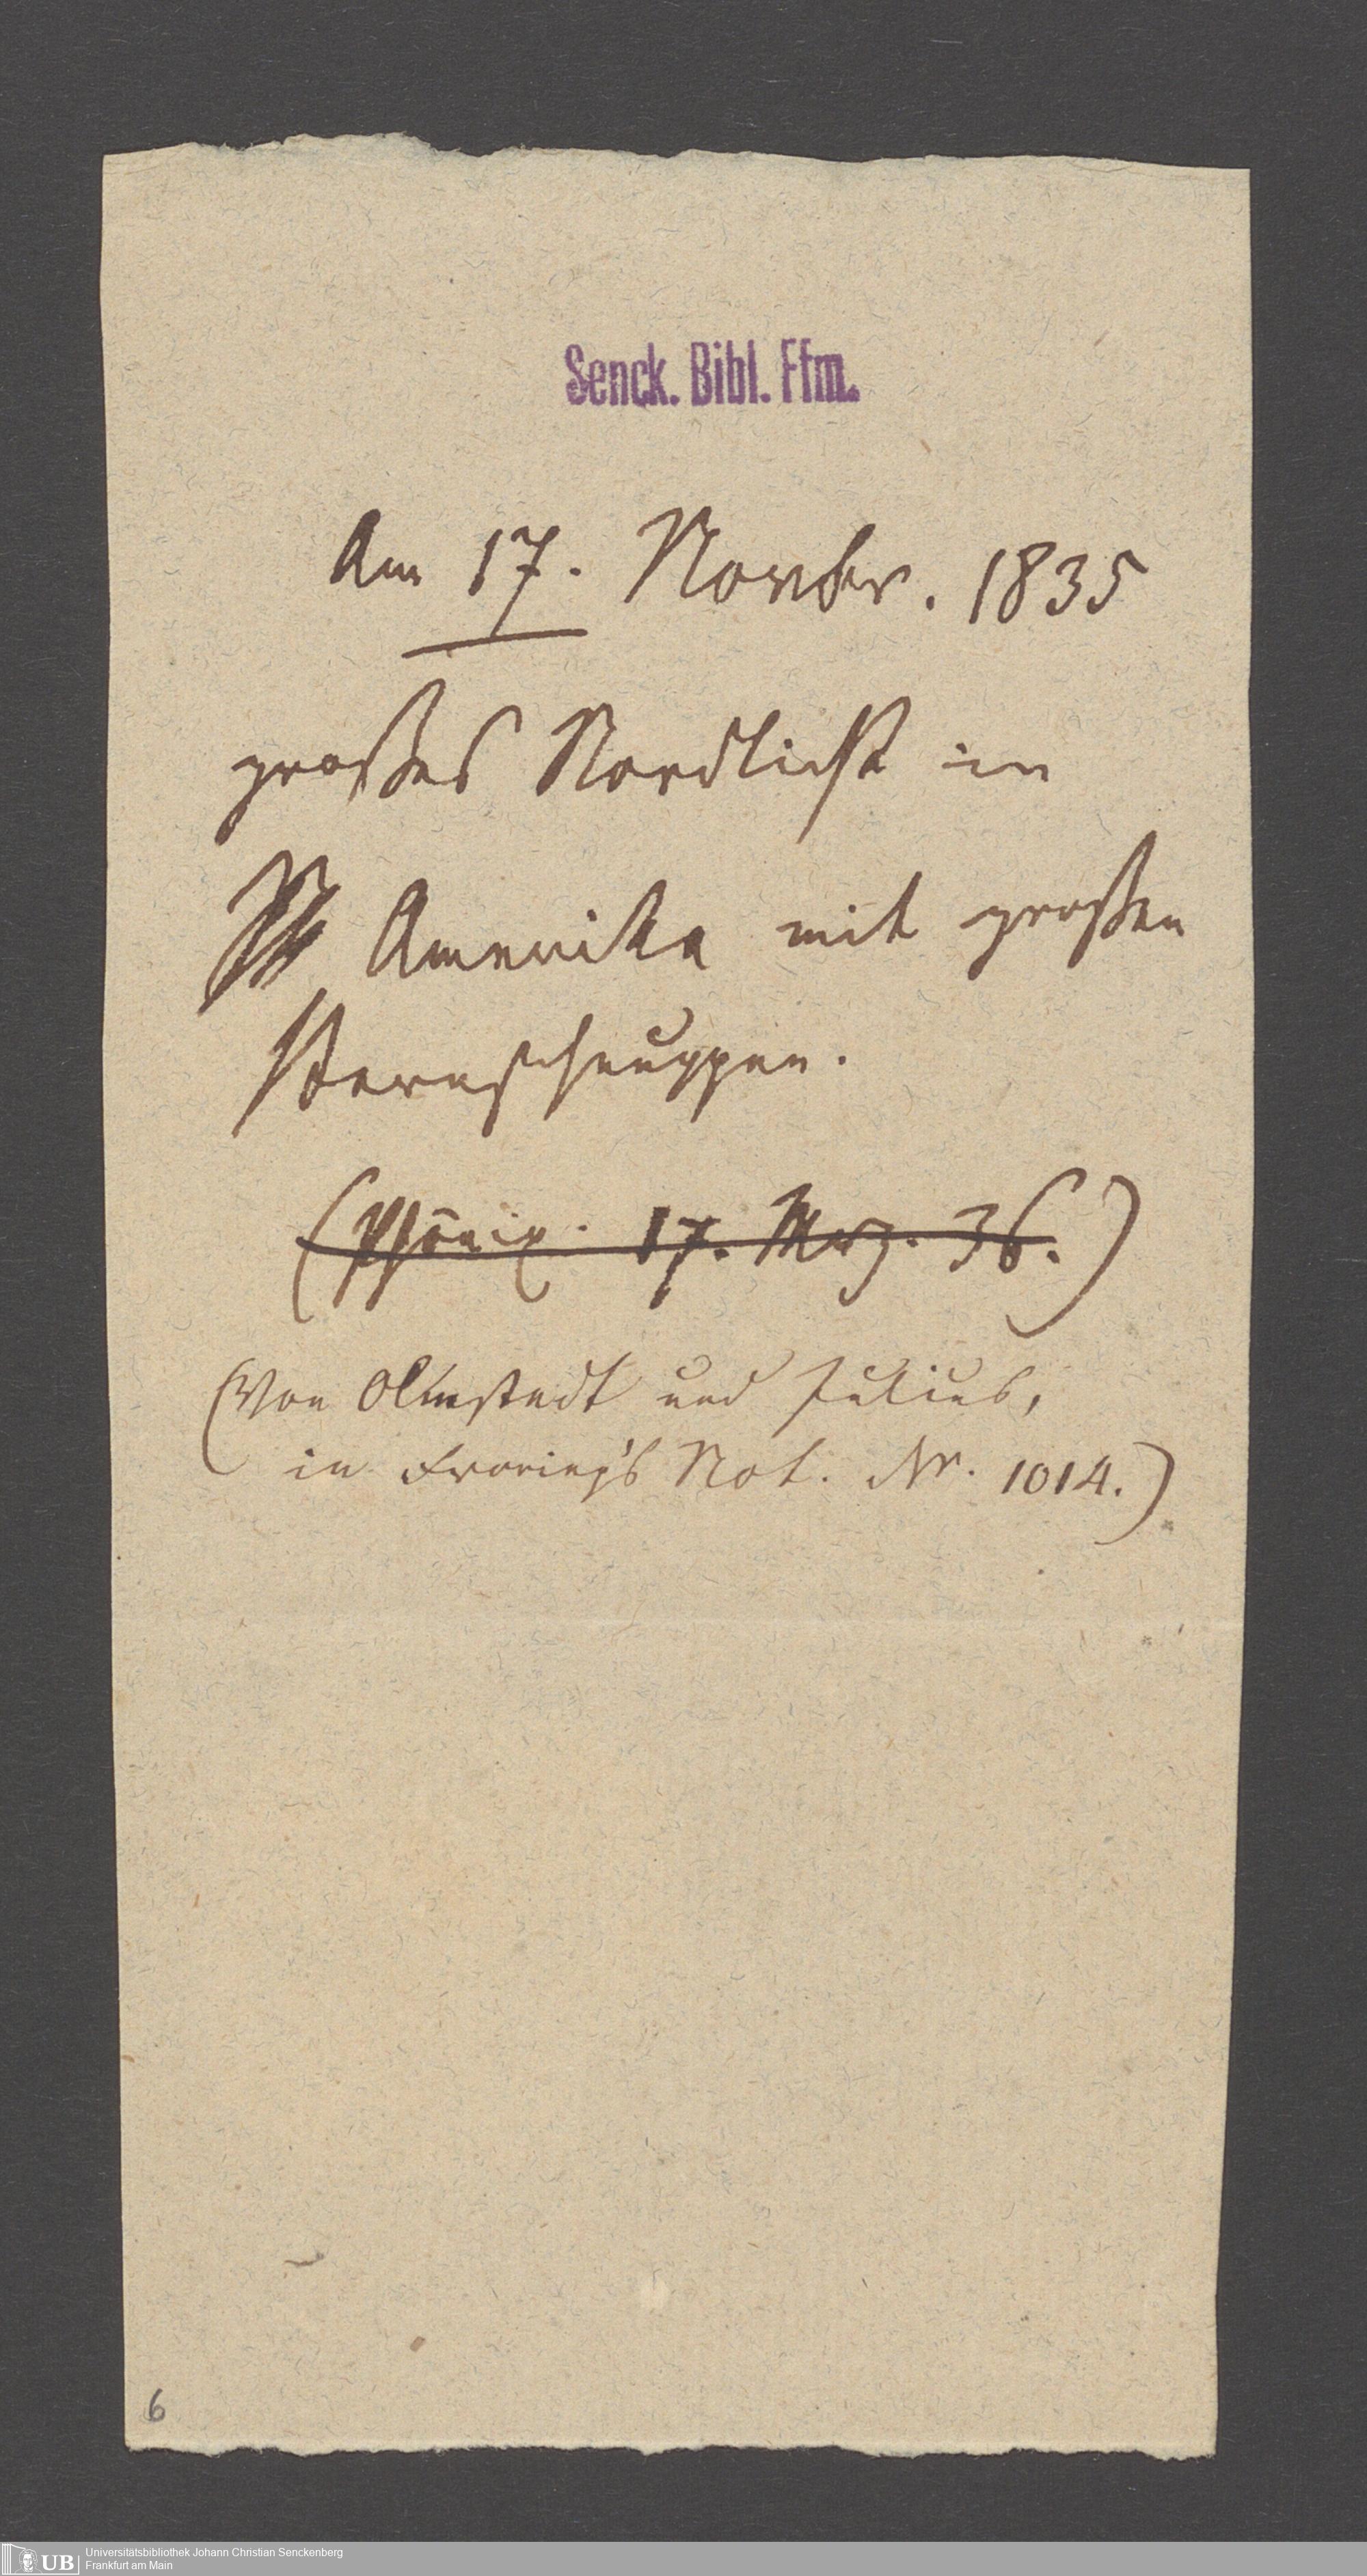 Senck. Bibl. Ffm.
Am 17. Novbr. 1835
großes Nordlicht in
Amerika mit großen
Sternschnuppen.
(Phönix. 17. Mrz. 36.)
(Von Olmstedt und Julius,
in Froriep's Not. Nr. 1014.)
6
UB Universitätsbibliothek Johann Christian Senckenberg
Frankfurt am Main